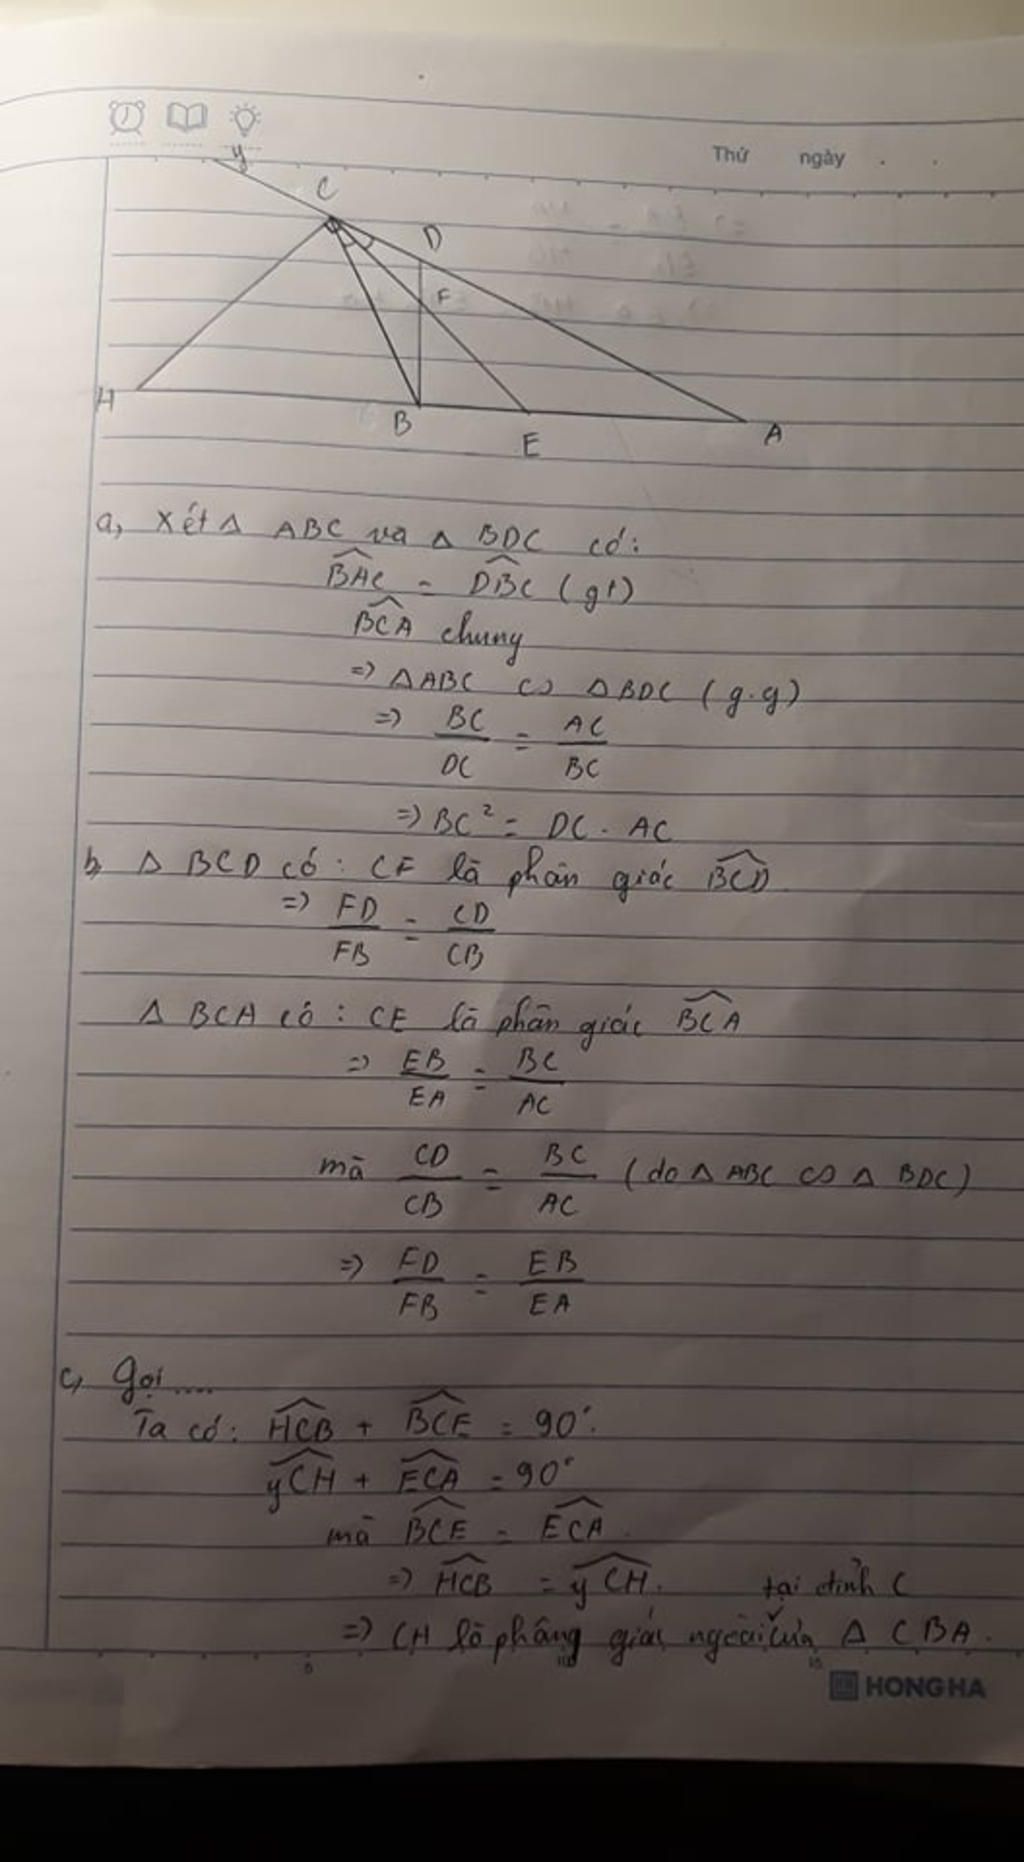 Thứ ngày
y
C
D
F
H
B
E
A
a, Xét Δ ABC và Δ BDC có:
BAC = DBC (gt)
BCA chung
=> ΔABC ∽ ΔBDC (g.g)
=> BC/DC = AC/BC
=> BC² = DC . AC
b, Δ BCD có : CF là phân giác BCD
=> FD/FB = CD/CB
Δ BCA có : CE là phân giác BCA
=> EB/EA = BC/AC
mà CD/CB = BC/AC (do Δ ABC ∽ Δ BDC)
=> FD/FB = EB/EA
c, Gọi ....
Ta có: HCB + BCE = 90°.
yCH + ECA = 90°
mà BCE = ECA.
=> HCB = yCH. tại đỉnh C
=> CH là phâng giác ngoài của Δ CBA.
5
10
15
HONG HA